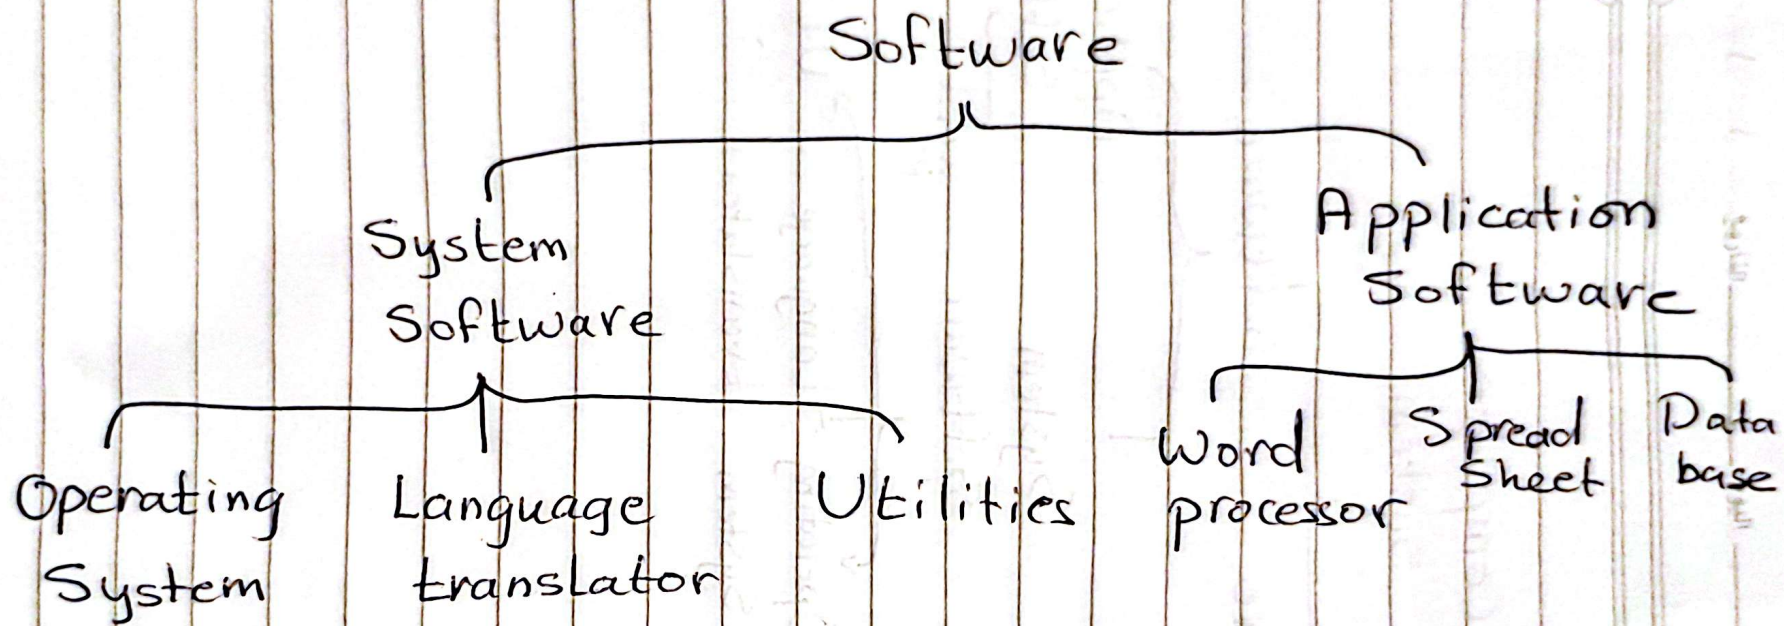 Software
System
Software
Application
Software
Operating
System
Language
translator
Utilities
Word
processor
Spread
Sheet
Data
base